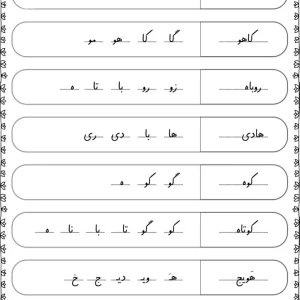 کاهو گا کا هو مو
روباه زو رو با تا ه
هادی ها با دی ری
کوه گو کو ه
کوتاه کو گو تا با نا ه
هَویج هَ ویـ دیـ ج خ